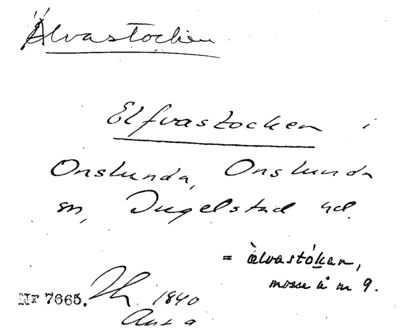 Älvastocken
Elfvastocken i
Onslunda, Onslunda
sn, Ingelstad hd.
= àlvastókan,
mosse å n 9.
Nr 7665. 1840